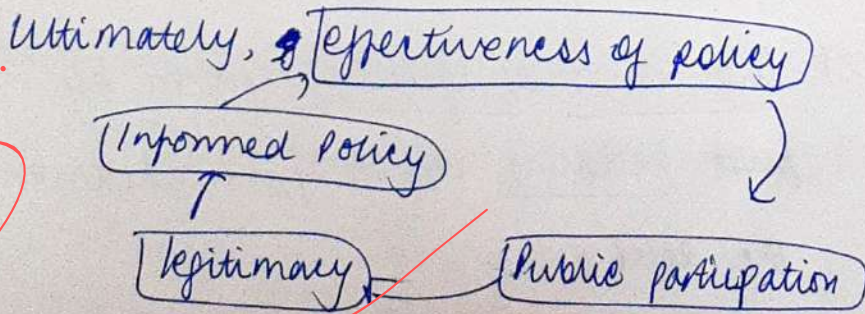 Ultimately, effectiveness of policy
Informed Policy
legitimacy
Public participation